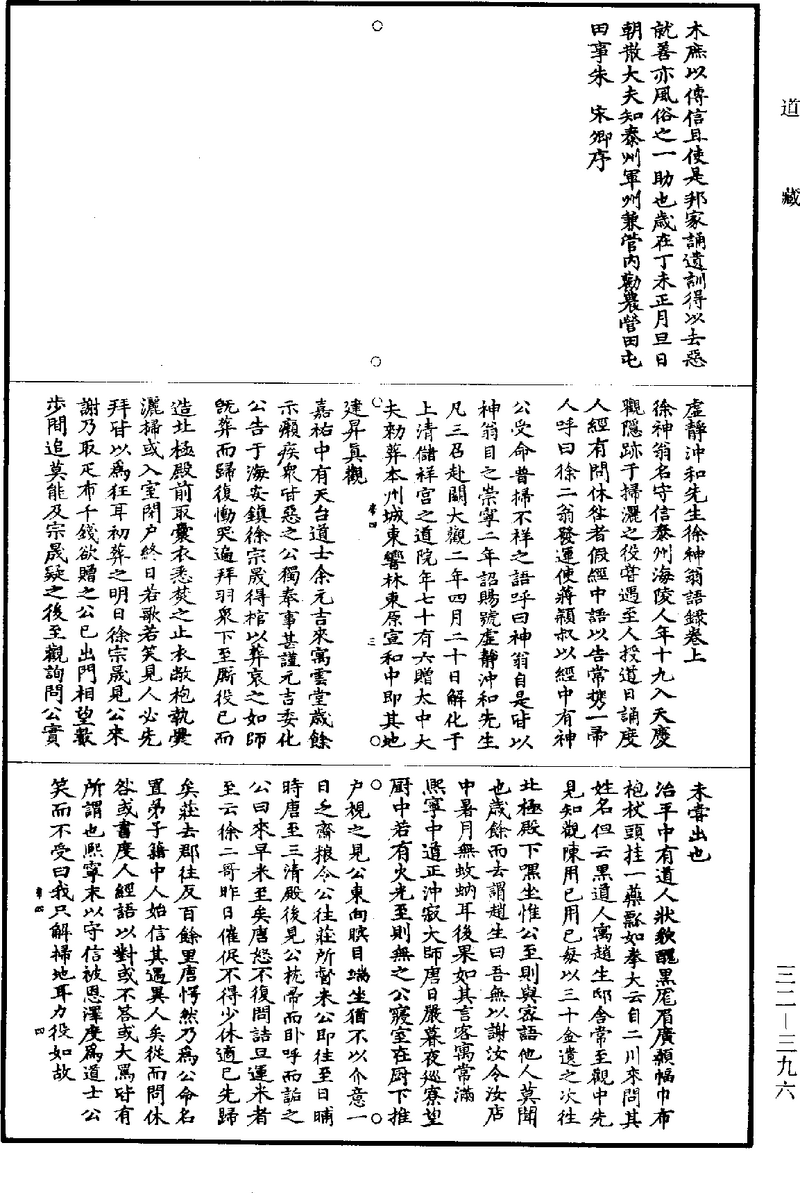 道藏
木庶以傳信且使是邦家誦遺訓得以去惡
就善亦風俗之一助也歲在丁未正月旦日
朝散大夫知泰州軍州兼管內勸農營田屯
田事朱　宋卿序
虛靜沖和先生徐神翁語錄卷上
徐神翁名守信泰州海陵人年十九入天慶
觀隱跡于掃灑之役嘗遇至人授道日誦度
人經有問休咎者假經中語以告常携一帚
人呼曰徐二翁發運使蔣穎叔以經中有神
公受命普掃不祥之語呼曰神翁自是皆以
神翁目之崇寧二年詔賜號虛靜沖和先生
凡三召赴闕大觀二年四月二十日解化于
上清儲祥宮之道院年七十有六贈太中大
夫勑葬本州城東響林東原宣和中即其地
建昇真觀
嘉祐中有天台道士余元吉來寓雲堂歲餘
示癩疾衆皆惡之公獨奉事甚謹元吉委化
公告于海安鎮徐宗晟得棺以葬哀之如師
旣葬而歸復慟哭遍拜羽衆下至厮役已而
造北極殿前取囊衣悉焚之止衣敝袍執糞
灑掃或入室閉户終日若歌若笑見人必先
拜皆以為狂耳初葬之明日徐宗晟見公來
謝乃取疋布千錢欲贈之公已出門相望數
步間追莫能及宗晟疑之後至觀詢問公實
未嘗出也
治平中有道人狀貌醜黑厖眉廣顙幅巾布
袍杖頭挂一藥瓢如拳大云自二川來問其
姓名但云黑道人寓趙生邸舍常至觀中先
見知觀陳用已用已每以三十金遺之次往
北極殿下黑坐惟公至則與家語他人莫聞
也歲餘而去謂趙生曰吾無以謝汝令汝店
中暑月無蚊蚋耳後果如其言客寓常滿
熙寧中道正沖寂大師唐日嚴暮夜巡寮望
厨中若有火光至則無之公寢室在厨下推
户視之見公東向瞑目端坐猶不以介意一
日乏齋粮令公往莊所督米公即往至日晡
時唐至三清殿後見公枕帚而卧呼而詬之
公曰來早米至矣唐怒不復問詰旦運米者
至云徐二哥昨日催促不得少休適已先歸
矣莊去郡往反百餘里唐愕然乃為公命名
置弟子籍中人始信其遇異人矣從而問休
咎或書度人經語以對或不答或大罵皆有
所謂也熙寧末以守信被恩澤度為道士公
笑而不受曰我只解掃地耳力役如故
三二—三九六